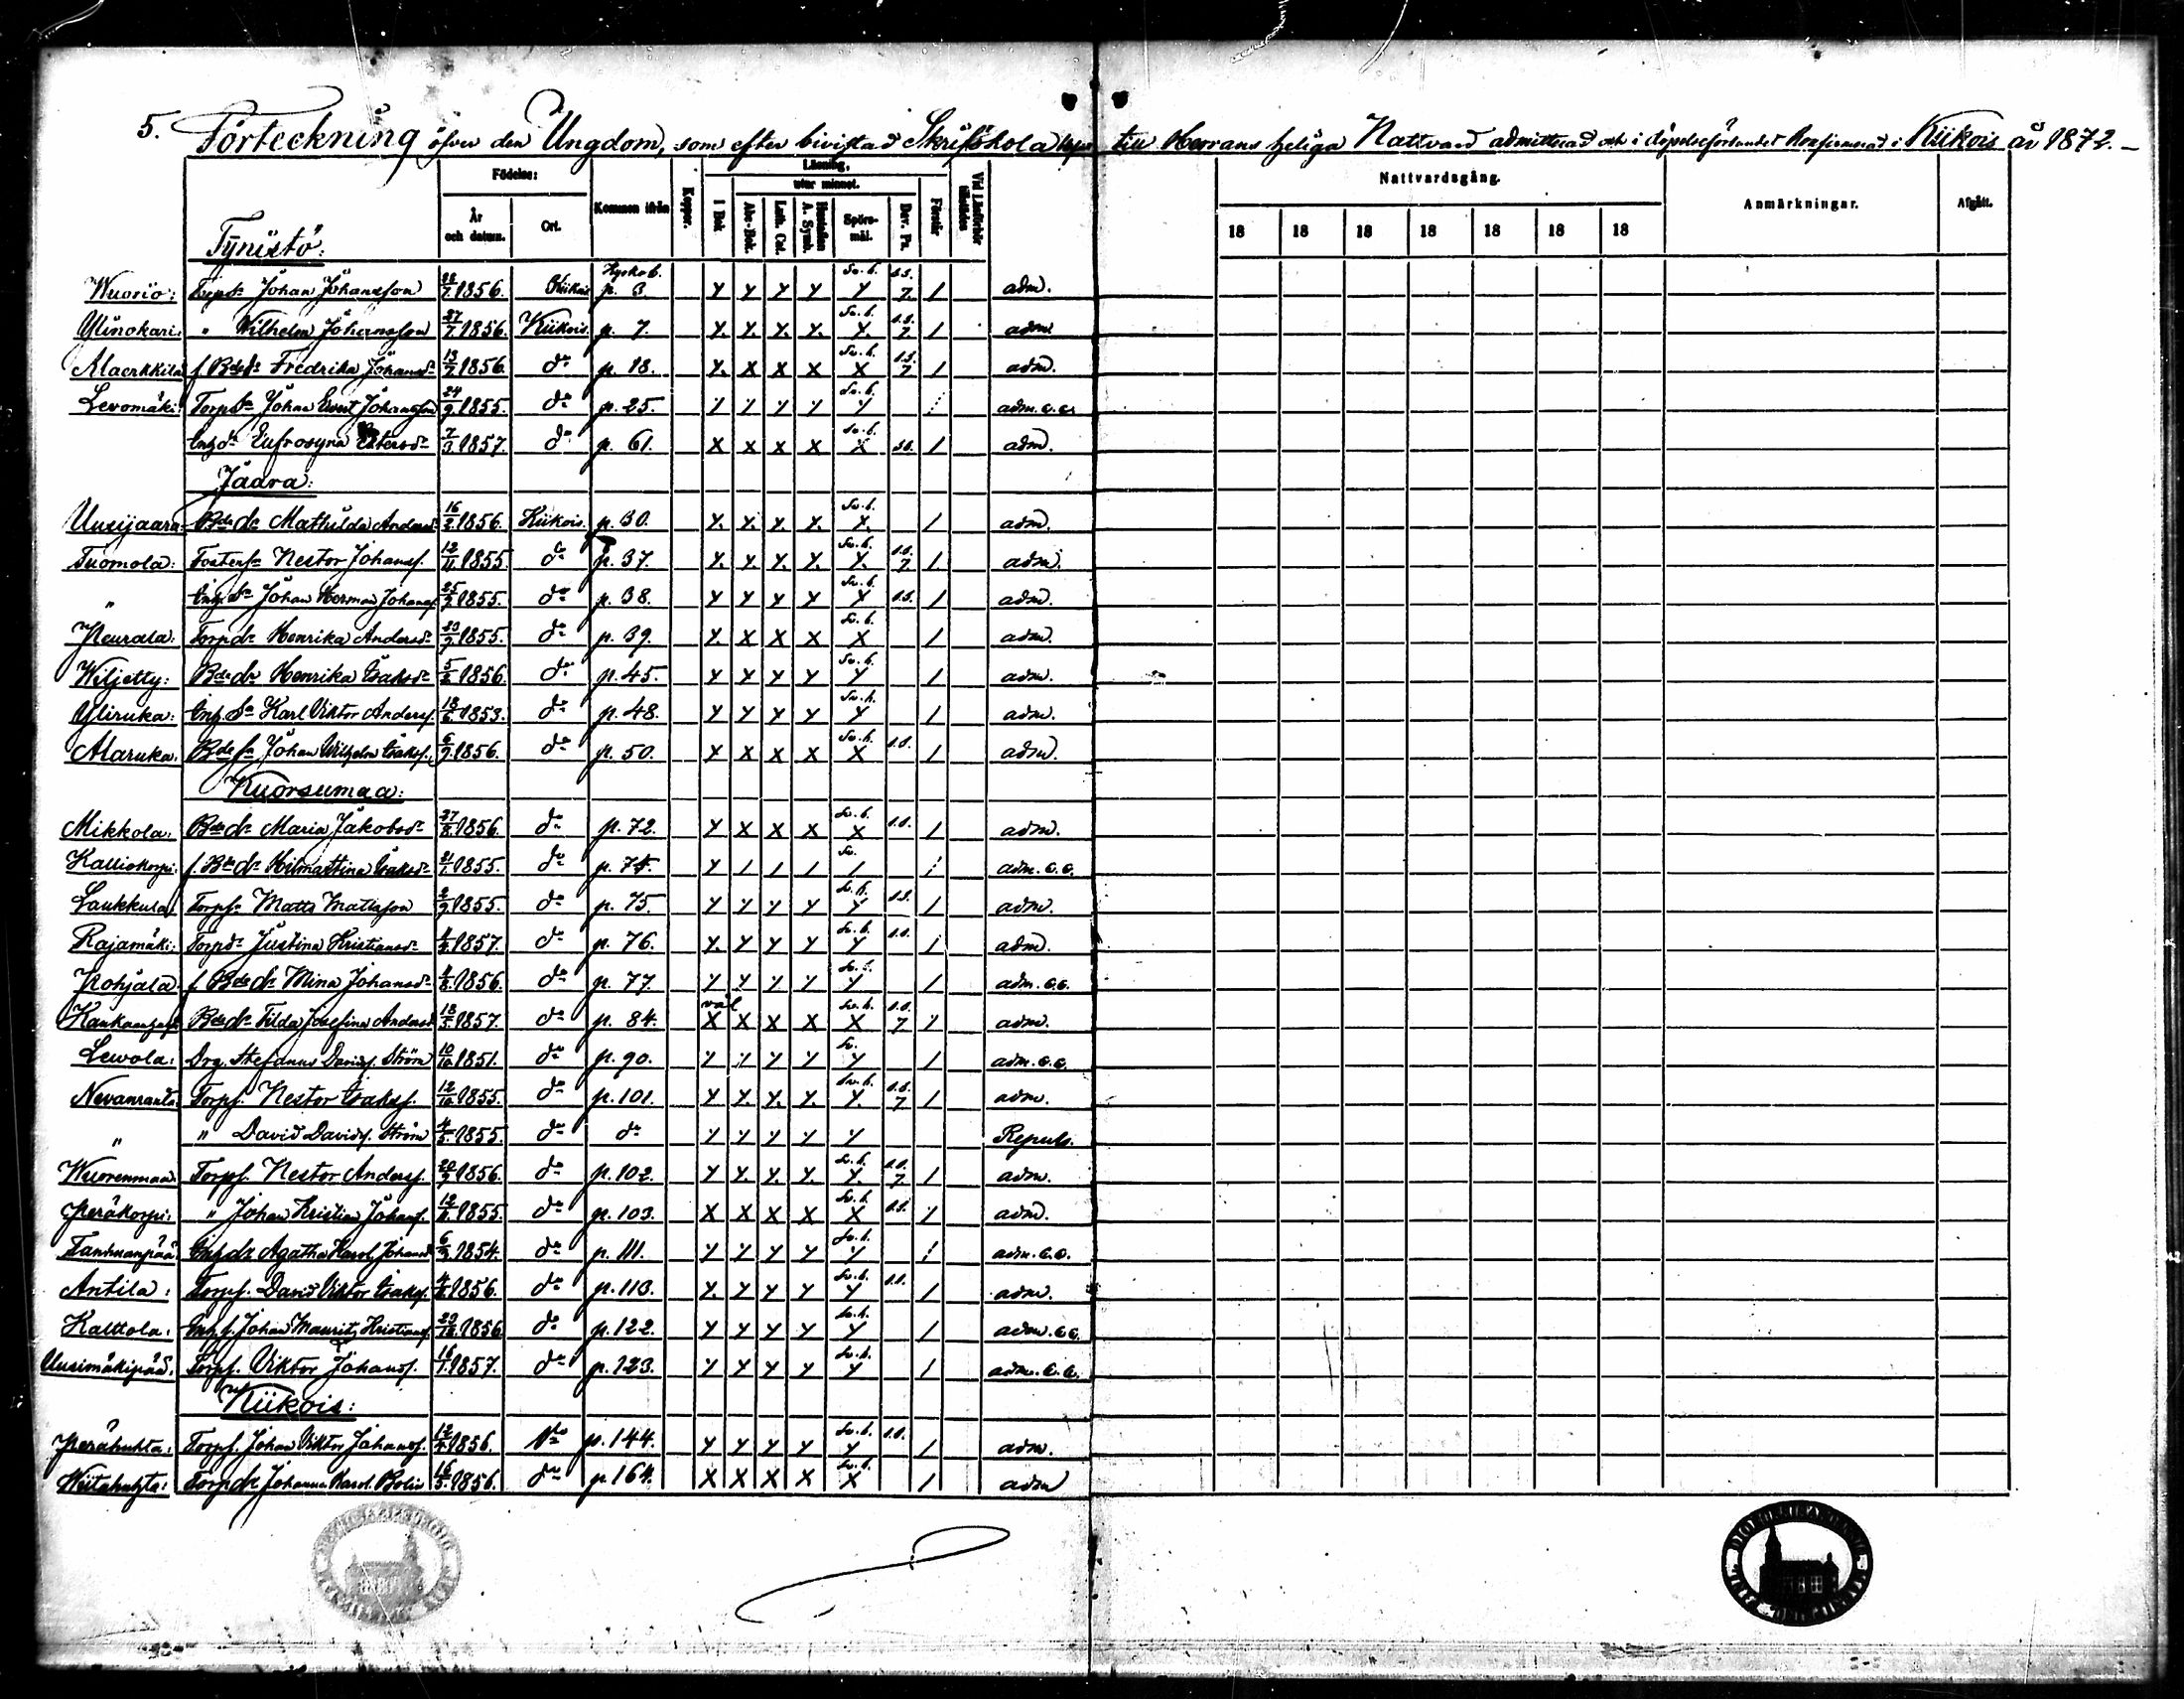 5. Förteckning öfver den Ungdom, som efter bivistad Skriftskola till Herrans heliga Nattvard admitterad och i döpelseförbundet Konfirmerad i Kiikois år 1872.
Födelse: Läsning, Nattvardsgång.
År och datum. Ort. Kommen ifrån Koppor. I Bok utur minnet. Abc-Bok. Luth. Cat. Hustaflan A. Symb. Spörsmål. Dav. Ps. Förstår Vid Läsförhör 18 18 18 18 18 18 18 Anmärkningar. Afgått.
Tynistö:
Wuorio: Torps. Johan Johansson 1856. Kiikois p. 3. y y y y Sv. b. y s.s. 7. / adm.
Ylinokari: " Wilhelm Johansson 27/7 1856. Kiikois. p. 7. y. y. y. y. Sv. b. y. s.s. 7. / adm.
Alaerkkilä f. Bde dr Fredrika Johansdr 13/7 1856. do p. 18. y. x x x Sv. b. x s.s. 7 / adm.
Levomäki: Torp sn Johan Evert Johansson 24/9 1855. do p. 25. y y y y Sv. b. y / adm. c.c.
Inh. dr Eufrosyna 7/3 1857. do p. 61. x x x x Sv. b. x s.s. / adm.
Jaara:
Uusijaara Bde dr Mathilda Andersdr 16/2 1856. Kiikois. p. 30. y. y. y. y. Sv. b. y. / adm.
Tuomola: Fosters. Nestor Johanss. 12/11 1855. do p. 37. y. y. y. y. Sv. b. y. s.s. 7 / adm.
" Inh. sn Johan Herman Johanss. 1855. do p. 38. y y y y Sv. b. y s.s. / adm.
Peurala: Torp dr Henrika Andersdr 1855. do p. 39. y. x x x Sv. b. x / adm.
Wiljetty: Bde dr Henrika Isaksdr 1856. do p. 45. y y y y Sv. b. y / adm.
Yliruka: Inh. sn Karl Viktor Anderss. 1853. do p. 48. y y y y Sv. b. y / adm.
Alaruka: Bde sn Johan Wilhelm Isakss. 6/9 1856. do p. 50. y x x x Sv. b. x s.s. / adm.
Kuorsumaa:
Mikkola: Bde dr Maria Jakobsdr 1856. do p. 72. y x x x Sv. b. x s.s. / adm.
Kalliokorpi: f. Bde dr Isaksdr 1855. do p. 74. y / / / Sv. / / adm. c.c.
Laukkula Torps. Matts Mattsson 2/9 1855. do p. 75. y y y y Sv. b. y s.s. / adm.
Rajamäki: Torp dr Justina Kristiansdr 1857. do p. 76. y. y y y Sv. b. y s.s. / adm.
Pohjala f. Bde dr Mina Johansdr 1856. do p. 77. y y y y Sv. b. y / adm. c.c.
Bde dr Tilda Josefina Andersd. 1857. do p. 84. väl x x x x Sv. b. x s.s. 7 / adm.
Lewola: Drg. Stefanus Davids. Ström 10/10 1851. do p. 90. y y y y Sv. y / adm. c.c.
Nevanranta Torps. Nestor Isakss. 12/10 1855. do p. 101. y y. y. y. Sv. b. y. s.s. 7 / adm.
" " David Davids. Ström 4/5 1855. do do y y y y y Repuls.
Wuorenmaa: Torps. Nestor Anderss. 20/9 1856. do p. 102. y y. y. y. Sv. b. y. s.s. 7 / adm.
Peräkorpi: " Johan Kristian Johanss. 12/11 1855. do p. 103. x x x x Sv. b. x s.s. / adm.
Tanhuanpää: Inh. dr Agatha Karol. Johansd. 1854. do p. 111. y y y y Sv. b. y / adm. c.c.
Antila: Torps. David Viktor Isakss. 1856. do p. 113. y. y y y Sv. b. y s.s. / adm.
Kalttola: Inh. s. Johan Mauritz Kristianss. 1856 do p. 122. y y y y Sv. b. y / adm. c.c.
Uusimäkipää: Torps. Viktor Johanss. 16/1 1857. do p. 123. y y y y Sv. b. y / adm. c.c.
Kiikois:
Perähuhta: Torps. Johan Viktor Johanss. 1856. do p. 144. y y y y Sv. b. y s.s. / adm.
Wiitahuhta: Torp dr Johanna Karol. Bolin 16/5 1856. do p. 164. x x x x Sv. b. x / adm